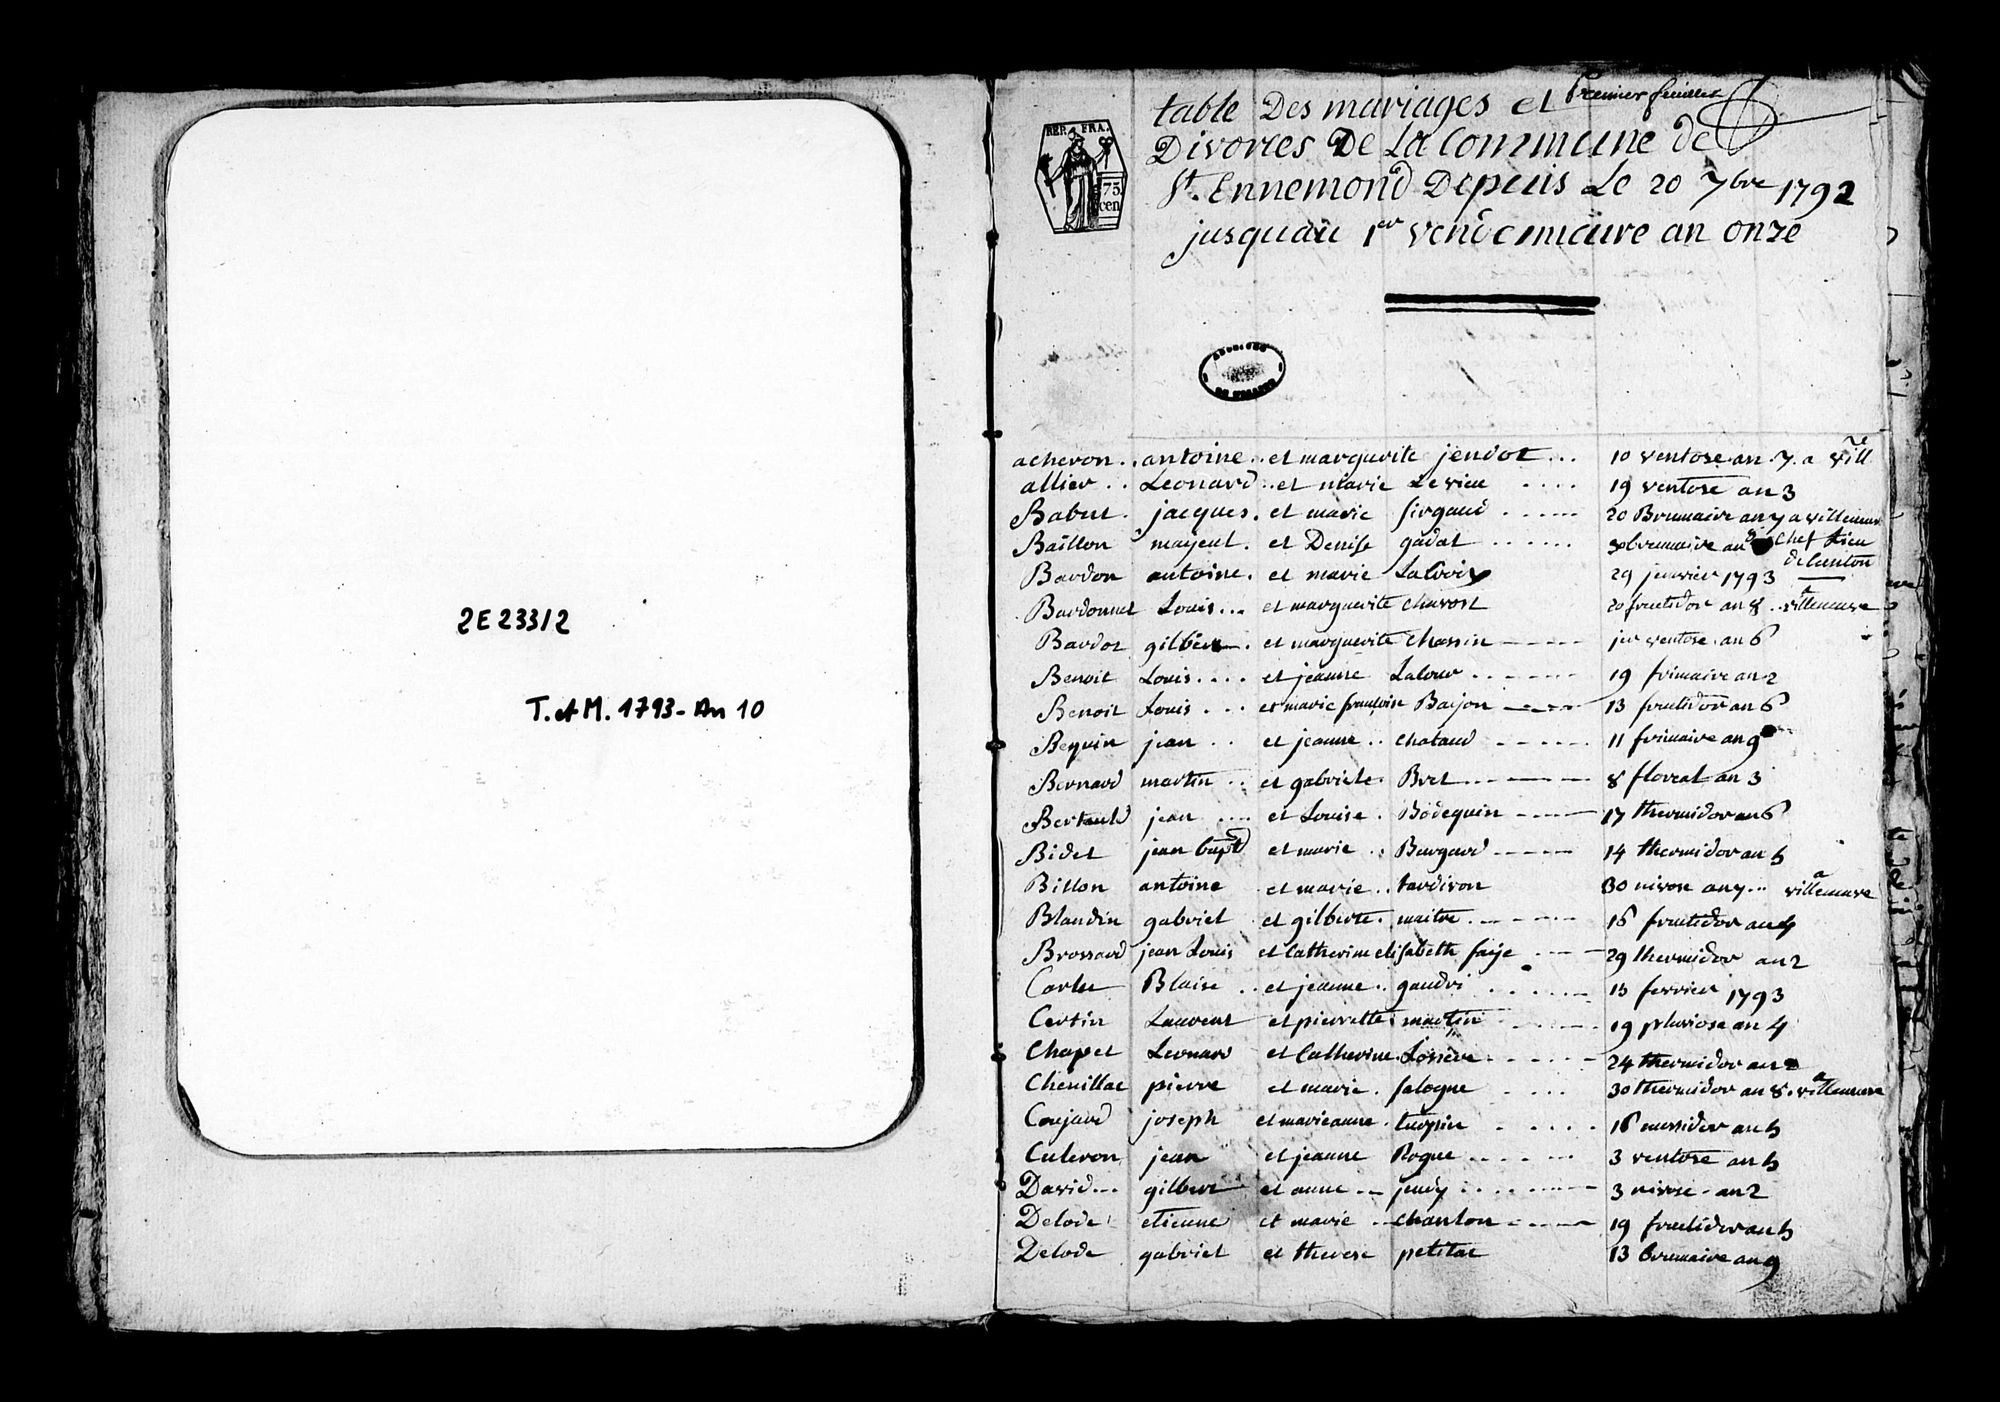 2E233/2
T. et M. 1793 - An 10
Premier feuillet
REP. FRA.
75
cen
table Des mariages et
Divorces De La Commune de
St. Ennemond Depuis Le 20 7bre 1792
jusquau 1er vendemiaire an onze
acheron . . antoine . . et marguerite jendot ... 10 ventose an 7. a vill
allier . . Leonard . . et marie Levieu .... 19 ventose an 3
Babut . jacques . et marie Sirgaud ...... 20 Brumaire an 7 a villeneuve
Baillon mayeul . et Denise gadat ...... brumaire an chef Lieu
de Canton
Bardon antoine . et marie Lacroix 29 janvier 1793
Bardonnet Louis ... et marguerite chavost 20 fructidor an 8 . a villeneuve
Bardot gilbert . et marguerite chassin ----- jer ventose an 6
Benoit Louis .... et jeanne Latour ....... 19 frimaire an 2
Benoit Louis ... et marie francoise Bajon ---- 13 fructidor an 6
Bequin jean .. et jeanne .. chataud ------ 11 frimaire an 9
Bernard martin .. et gabriele . Bret ------ 8 floreal an 3
Bertauld jean .... et Louise . Bodequin ----- 17 thermidor an 6
Bidet jean bapt et marie .. Burgard ----- 14 thermidor an 5
Billon antoine et marie .. tardivon 30 nivose an 7 ... a villeneuve
Blandin gabriel et gilberte . maitre ------ 16 fructidor an 4
Brossard jean Louis et Catherine elisabeth faye ---- 29 thermidor an 2
Cartier Blaise .. et jeanne . gaudri ...... 15 fevrier 1793
Certin Laurent et pierrette martin ------ 19 pluviose an 4
Chapet Leonard et Catherine ------ 24 thermidor an
Chenillat pierre et marie . Sologne .... 30 thermidor an 8 . a villeneuve
Coujard joseph et marieanne . turpin ..... 16 messidor an 5
Culeron jean et jeanne Rogue ..... 3 ventose an 5
David ... gilbert et anne .. jendy ....... 3 nivose . an 2
Delode etienne et marie .. chanlon ----- 19 fructidor an 5
Delode gabriel et therese petitat 13 brumaire an 9